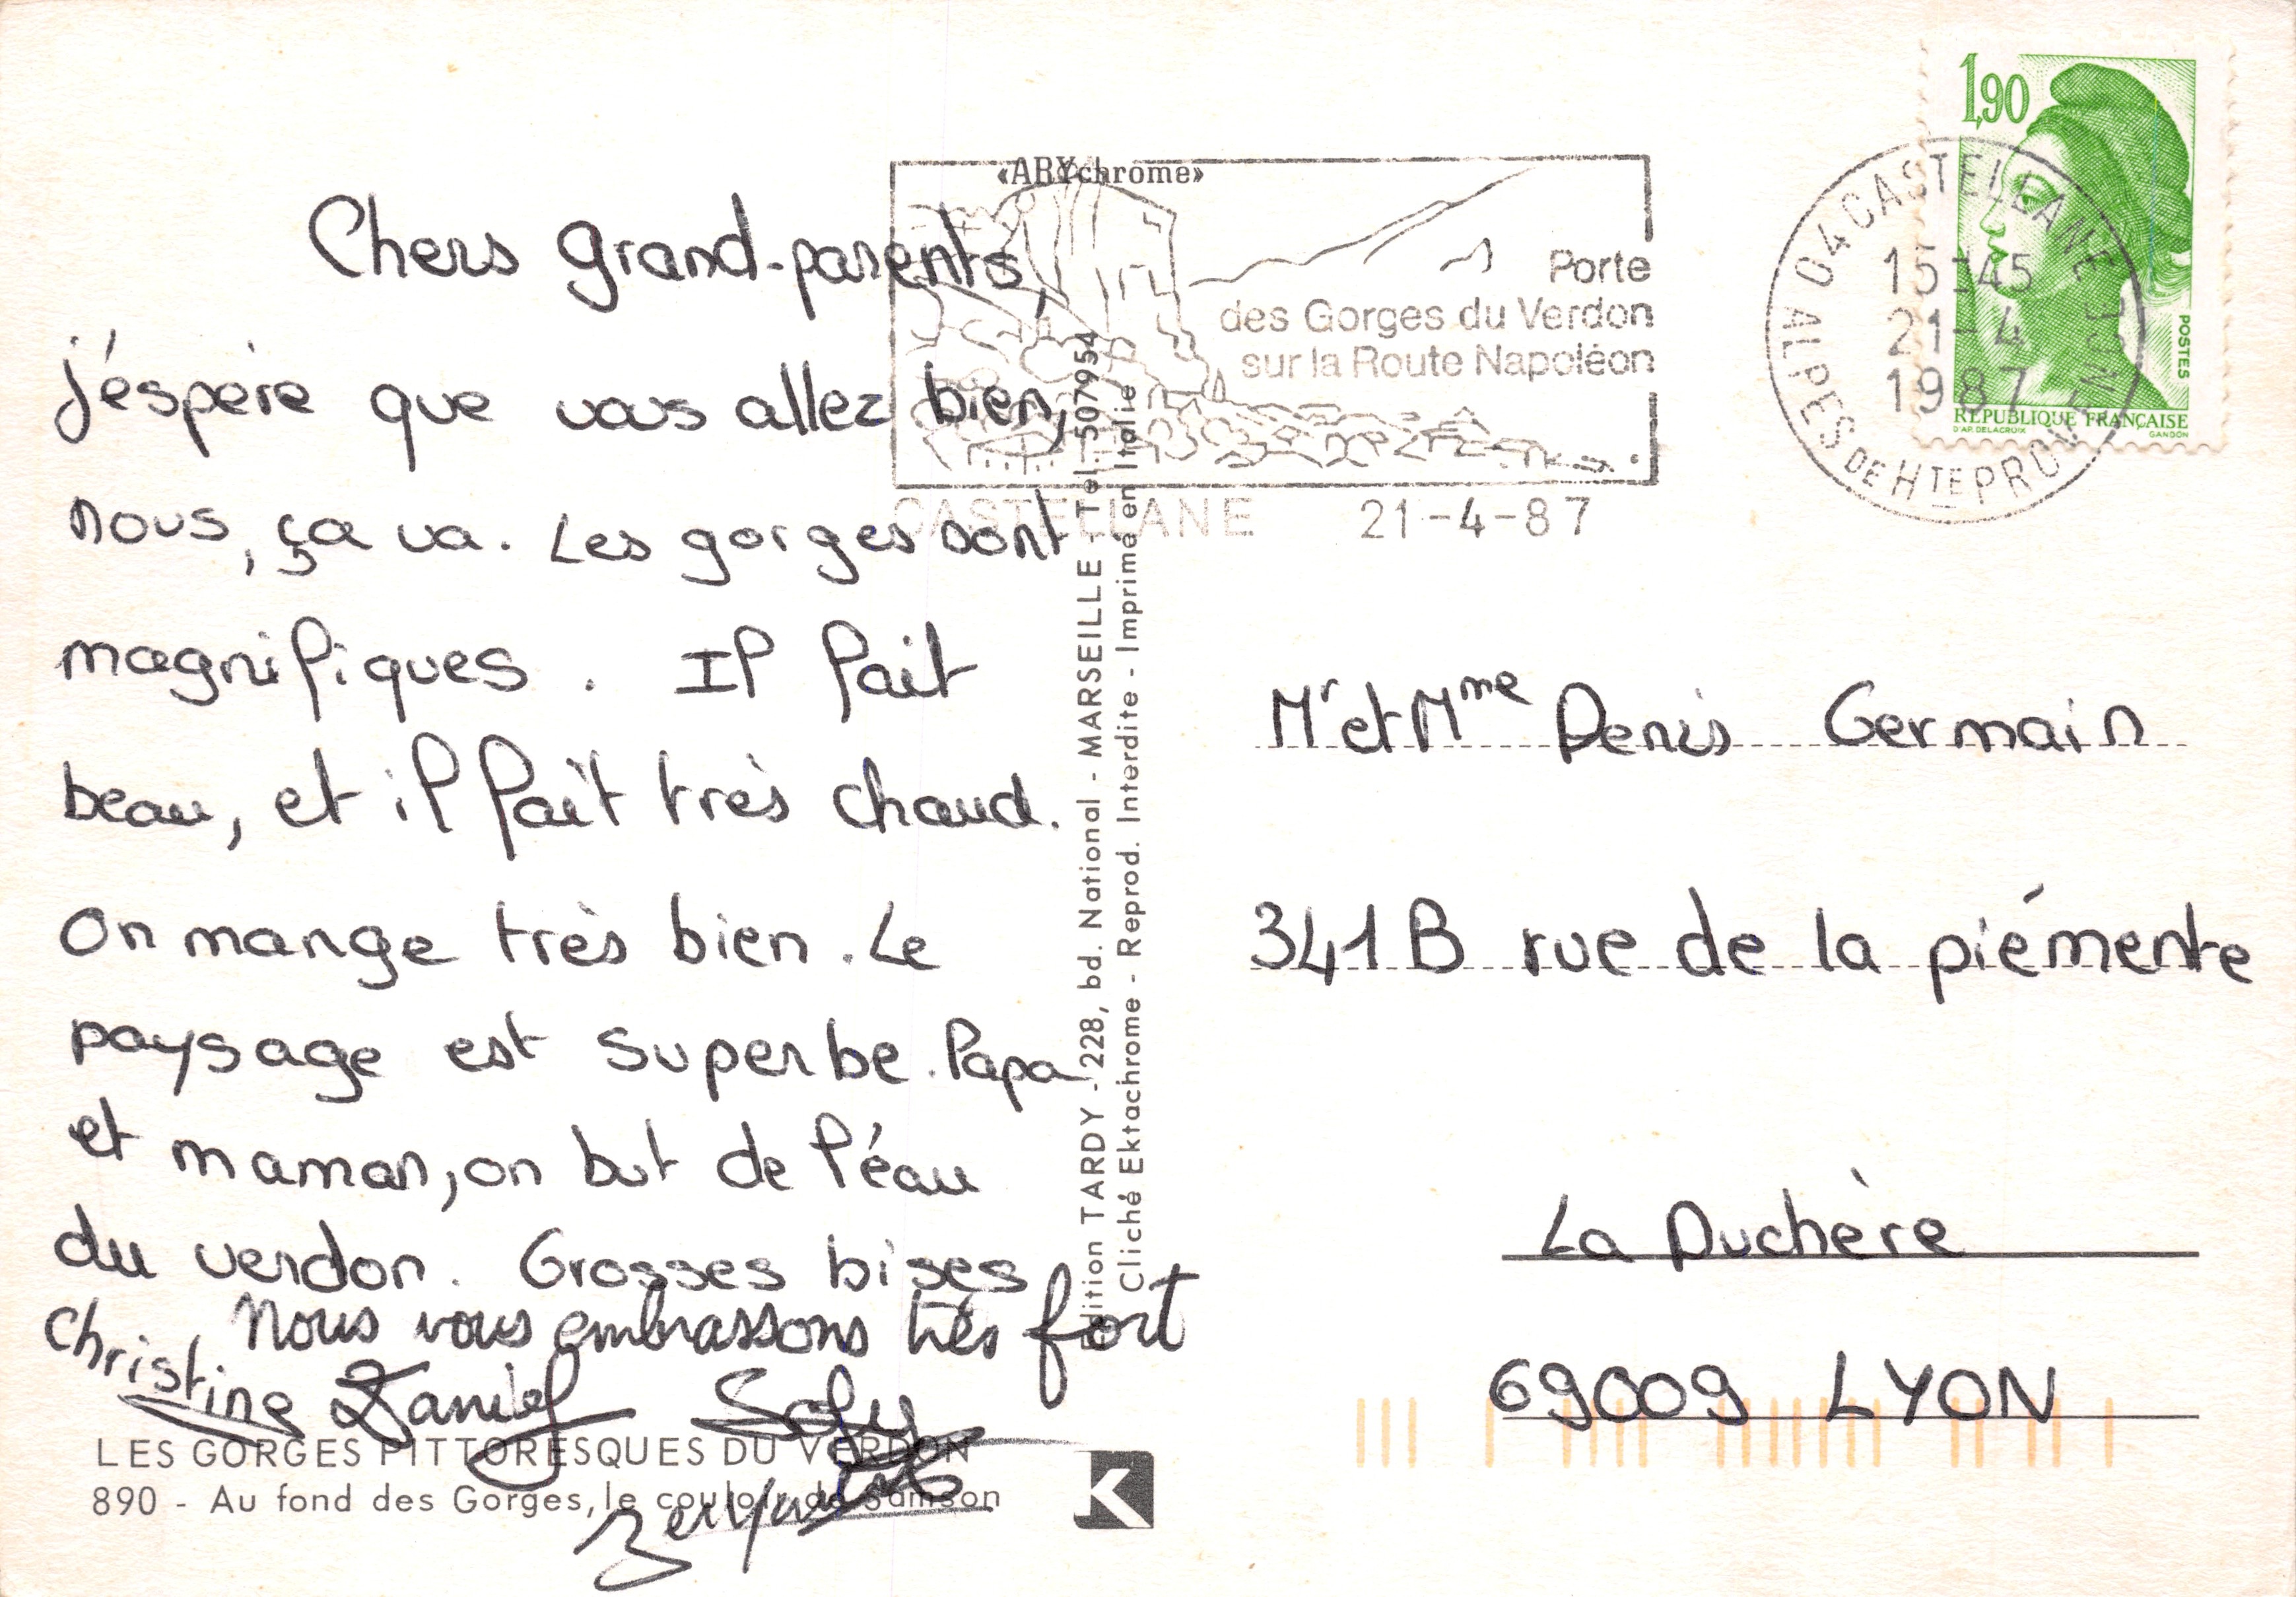 Chers grand-parents,
j'éspère que vous allez bien,
nous, ça va. Les gorges sont
magnifiques. Il fait
beau, et il fait très chaud.
On mange très bien. Le
paysage est superbe. Papa
et maman, on but de l'éau
du verdon. Grosses bises
Nous vous embrassons très fort
Christine Daniel Sofy
LES GORGES PITTORESQUES DU VERDON
890 - Au fond des Gorges, le couloir de Samson
«ARYchrome»
Edition TARDY - 228, bd. National - MARSEILLE - Tel. 507954
Cliché Ektachrome - Reprod. Interdite - Imprimé en Italie
K
Porte
des Gorges du Verdon
sur la Route Napoléon
CASTELLANE 21-4-87
04 CASTELLANE
15H45
21-4
1987
ALPES DE HTE PROVENCE
1,90
POSTES
REPUBLIQUE FRANÇAISE
D'AP. DELACROIX GANDON
Mr et Mme Denis Germain
341 B rue de la piémente
La Duchère
69009 LYON